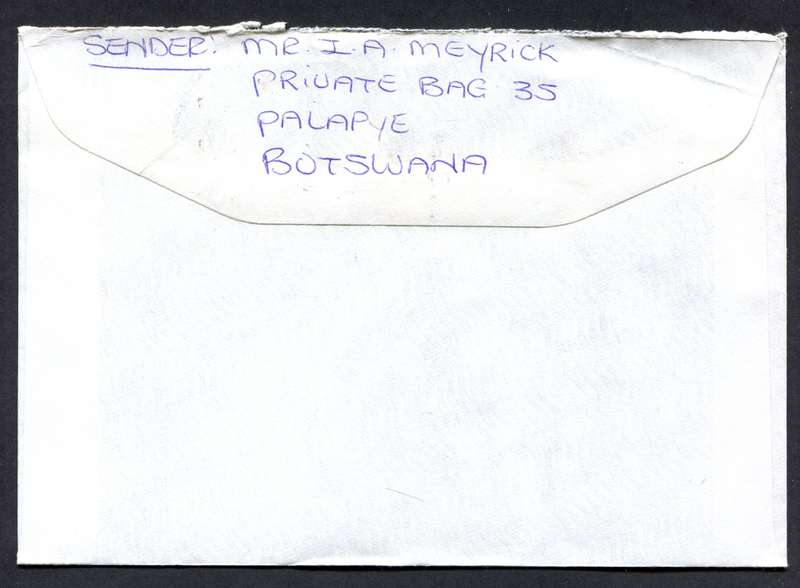 SENDER: MR. I. A. MEYRICK
PRIVATE BAG 35
PALAPYE
BOTSWANA